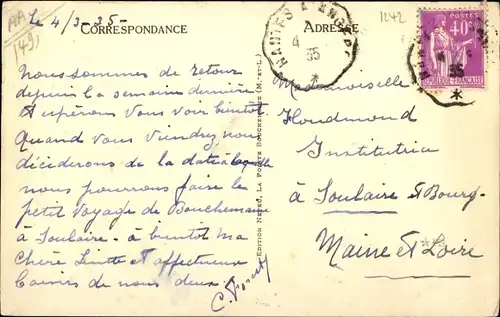 AA
(49)
le 4/3-35-
CORRESPONDANCE
Nous sommes de retour
depuis la semaine dernière
et espérons vous voir bientôt
Quand vous viendrez nous
déciderons de la date à laquelle
nous pourrons faire le
petit voyage de Bouchemaine
à Soulaire - à bientôt ma
chère et affectueux
baisers de nous deux
EDITION NEVEU, LA POINTE BOUCHEMAINE (M.-ET-L.)
ADRESSE
1242
NANTES A ANGERS
4 - 3
35
POSTES 40c
RÉPUBLIQUE FRANÇAISE
Mademoiselle
Houdmond
Institutrice
à Soulaire et Bourg
Maine et Loire